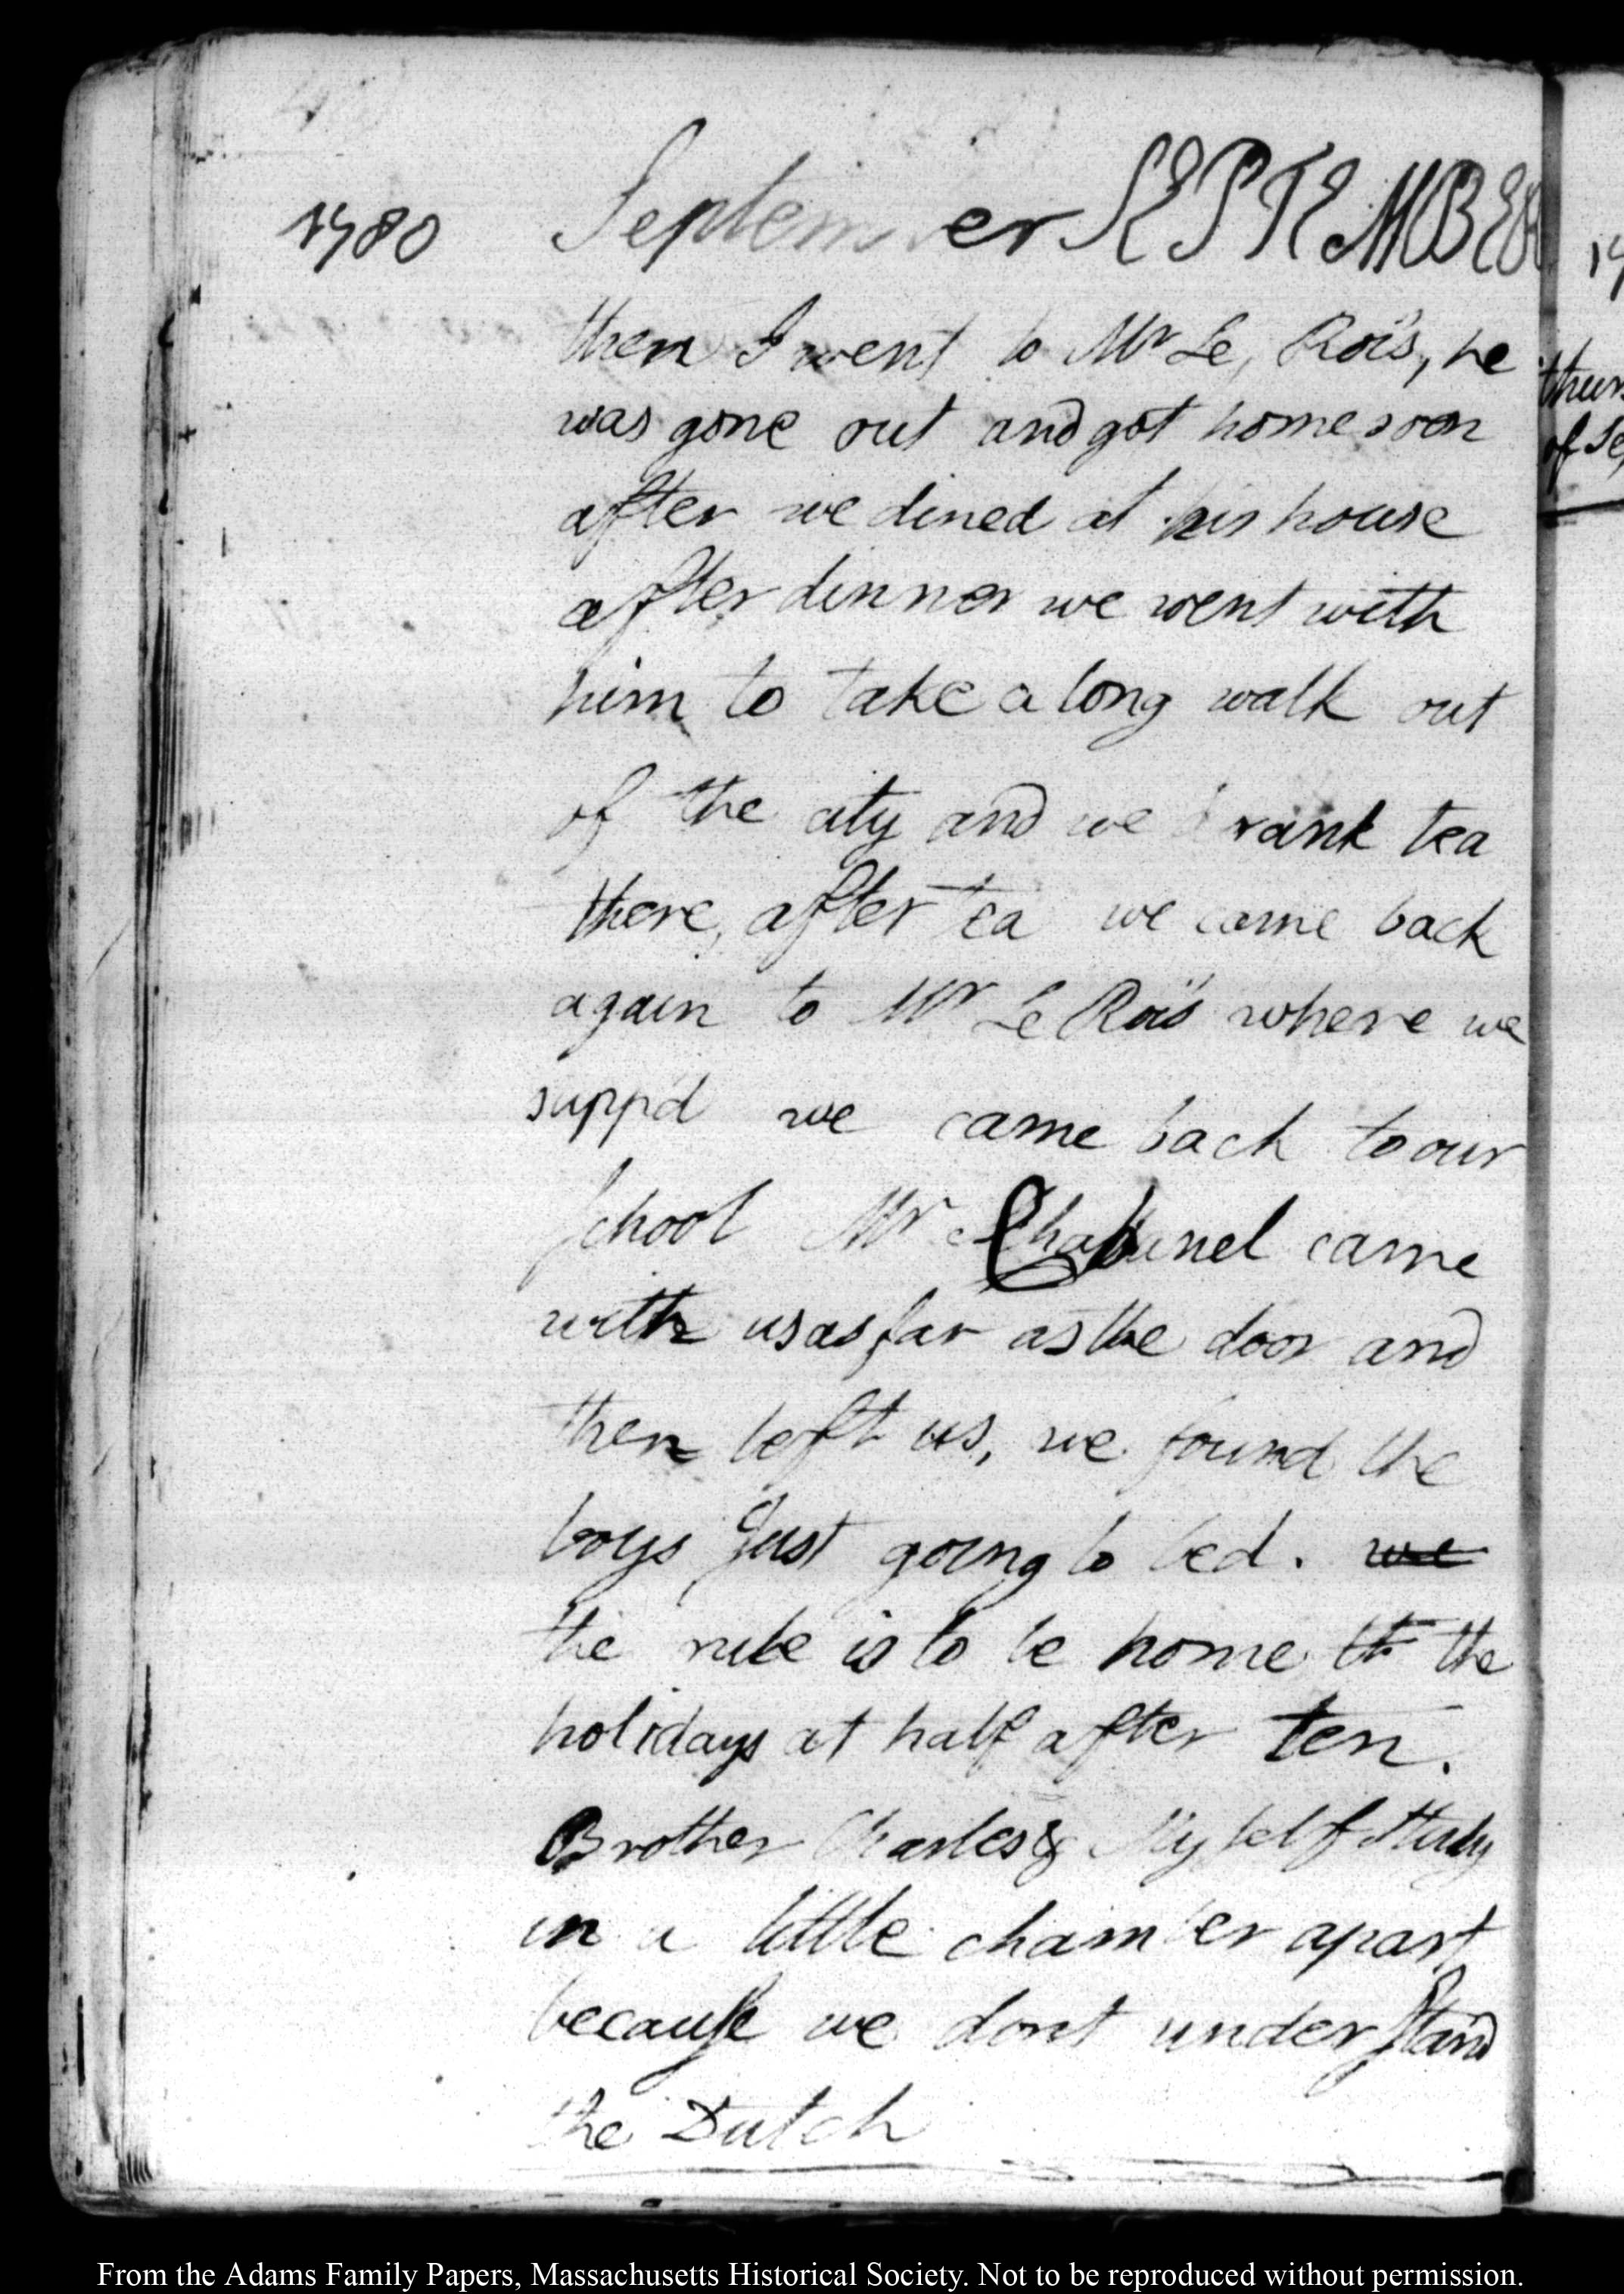 1780 September SEPTEMBER
then I went to Mr Le, Rois, he
was gone out and got home soon
after we dined at his house
after dinner we went with
him to take a long walk out
of the city and we drank tea
there, after tea we came back
again to Mr Le Rois where we
supp'd we came back to our
School Mr came
with us as far as the door and
then left us, we found the
boys just going to bed. we
the rule is to be home th the
holidays at half after ten.
Brother Charles & Myself study
in a little chamber apart
because we dont understand
the Dutch
From the Adams Family Papers, Massachusetts Historical Society. Not to be reproduced without permission.